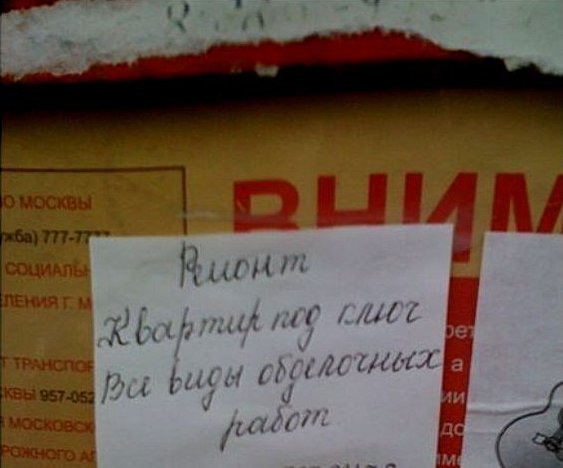 ВНИМ
О МОСКВЫ
жба) 777-77
СОЦИАЛЬ
ЛЕНИЯ Г. М
Т ТРАНСПОР
КВЫ 957-052
МОСКОВСК
РОЖНОГО А
Ремонт
Квартир под ключ
Все виды обделочных
работ
рет
а
ии
до